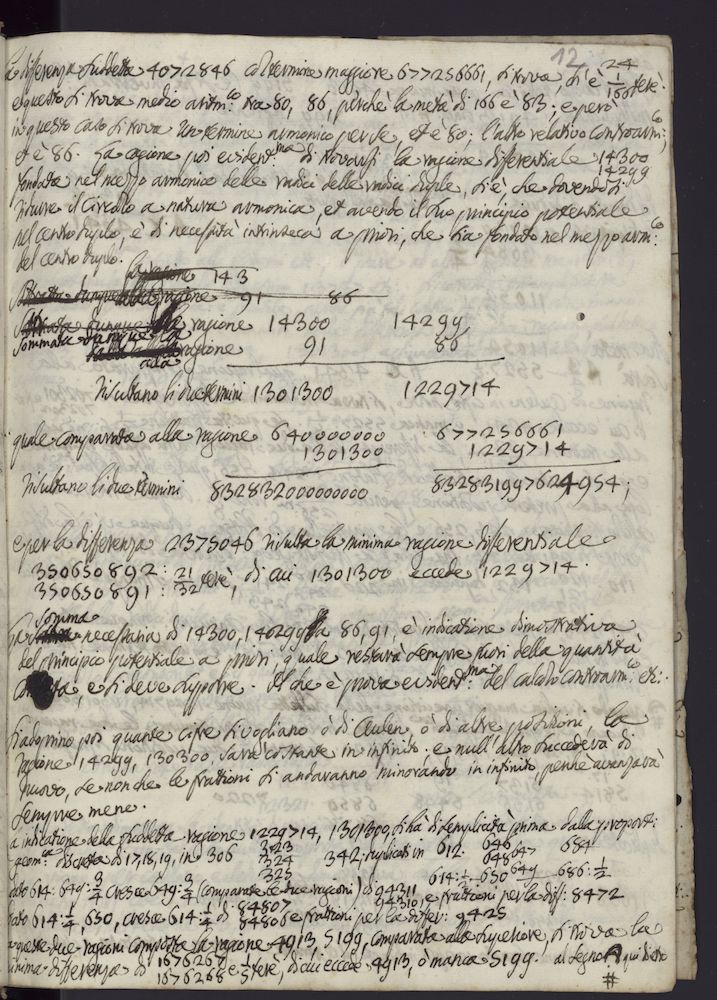 12
la differenza suddetta 4072846 col termine maggiore 677256661, si trova, ch'è 24 1/166 terè.
e questo si trova medio aritm:co tra 80, 86, perchè la metà di 166 è 83; e però
in questo caso si trova un termine armonico per se, et è 80; l'altro relativo contrarm:co,
et è 86. La cagione poi evident:ma di trovarsi la ragione differentiale 14300 14299
fondata nel mezzo armonico delle radici delle radici duple, si è, che dovendosi
ridurre il Circolo a natura armonica, et avendo il suo principio potentiale
nel centro duplo, è di necessità intrinseca a priori, che sia fondato nel mezzo arm:co
del centro duplo.
la ragione 143
ragione 91 86
Sommata dunque la ragione 14300 14299
alla ragione 91 86
risultano li due termini 1301300 1229714
quale comparata alla ragione 640000000 677256661
1301300 1229714
risultano li due termini 832832000000000 832831997624954;
e per la differenza 2375046 risulta la minima ragione differentiale
350650892 : 21
350650891 : 32 terè, di cui 1301300 eccede 1229714.
La Somma necessaria di 14300, 14299 a 86, 91, è indicatione dimostrativa
del principio potentiale a priori, quale restarà sempre fuori della quantità
, e si deve supporre. Il che è prova evident:ma del calcolo contrarm:co etc:
Si adoprino poi quante cifre si vogliano ò di Ceulen, ò di altre positioni, la
ragione 14299, 130300, sarà costante in infinito: e null'altro succederà di
nuovo, se non che le frationi si andaranno minorando in infinito, perchè avanzarà
sempre meno.
a indicatione della suddetta ragione 1229714, 1301300, si hà di semplicità prima dalla proport:
geom:ca discreta di 17, 18, 19, in 306 323 324 325 342; replicati in 612. 646 648 647 684
614:1/2 650 649 686:1/2
614: 649:3/4 cresce 649:3/4 (comparate le due ragioni) di 94311 94310, e frationi per la diff: 8472
614:1/4, 650, cresce 614:1/4 di 84807 84806 e frationi per la differ: 9425
queste due ragioni composta la ragione 4913, 5199, comparata alla superiore, si trova la
minima differenza di 1676267 1676268 e 1/5 terè, di cui eccede 4913, ò manca 5199. al segno qui dietro
#